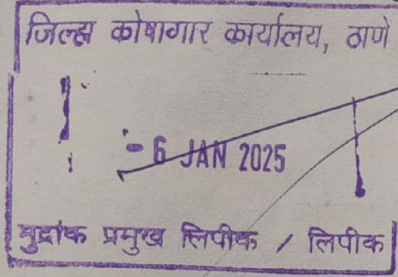 जिल्हा कोषागार कार्यालय, ठाणे
- 6 JAN 2025
मुद्रांक प्रमुख लिपीक / लिपीक